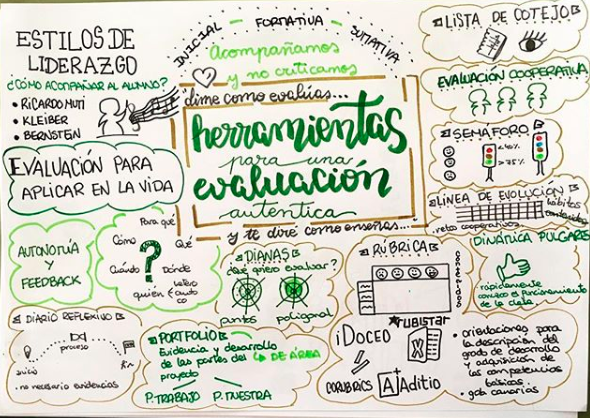 ESTILOS DE
LIDERAZGO
¿CÓMO ACOMPAÑAR AL ALUMNO?
• RICARDO MUTI
• KLEIBER
• BERNSTEIN
INICIAL - FORMATIVA - SUMATIVA
Acompañamos
y no criticamos
dime como evalúas...
herramientas
para una
evaluación
autentica
y te diré como enseñas...
LISTA DE COTEJO
EVALUACIÓN COOPERATIVA
SEMÁFORO
>75%
LÍNEA DE EVOLUCIÓN
hábitos
contenidos
retos cooperativos
EVALUACIÓN PARA
APLICAR EN LA VIDA
AUTONOMÍA
Y
FEEDBACK
Para qué
Cómo
Qué
?
Cuándo
Dónde
quién
hetero
auto
co
DIANAS
¿Qué quiero evaluar?
puntos
poligonal
RÚBRICA
DINÁMICA PULGARES
rápidamente
conozco el funcionamiento
de la clase
DIARIO REFLEXIVO
proceso
inicio
fin
• no necesario evidencias
PORTFOLIO
Evidencia y desarrollo
de las partes del
proyecto
DE ÁREA
P. TRABAJO P. MUESTRA
iDOCEO
RUBISTAR
CORUBRICS
Additio
• orientaciones para
la descripción del
grado de desarrollo
y adquisición de
las competencias
básicas.
• gob canarias